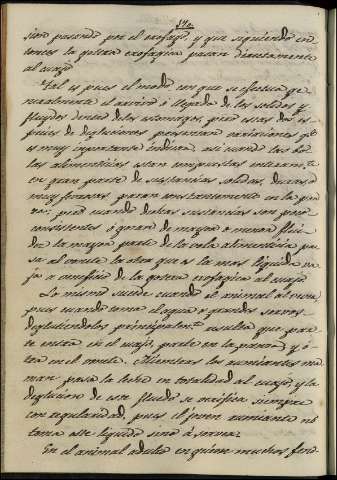 sino pasando por el esofago, y que siguiendo en-
tonces la gotera esofagica pasan directamente
al cuajo
Tal es pues el modo con que se efectua ge-
neralmente el arrivo ó llegada de los solidos y
fluydos dentro de los estomagos, pero estas dos es-
pecies de degluciones presentan variaciones q.e
es muy importante indicar. asi cuando los bo-
los alimenticios estan compuestos enteram.te
en gran parte de sustancias solidas, duras, ó
muy fibrosas pasan constantemente en la pan-
za; pero cuando dichas sustancias son poco
consistentes ó gozan de mayor o menor flui-
dez la mayor parte de la bola alimenticia pa-
sa al omaso la otra que es la mas liquida va-
ja a beneficio de la gotera esofagica al cuajo.
Lo mismo sucede cuando el animal al
pues cuando toma el agua a grandes sorvos
deglutiendolos principalm.te resulta que par-
te entra en el cuajo, parte en la panza, y ó-
tra en el omaso. Mientras los rumiantes ma-
man pasa la leche en totalidad al cuajo, y la
deglucion de este fluido se verifica siempre
con regularidad, pues el joven rumiante no
toma este liquido sino á sorvos.
En el animal adulto en quien muchos